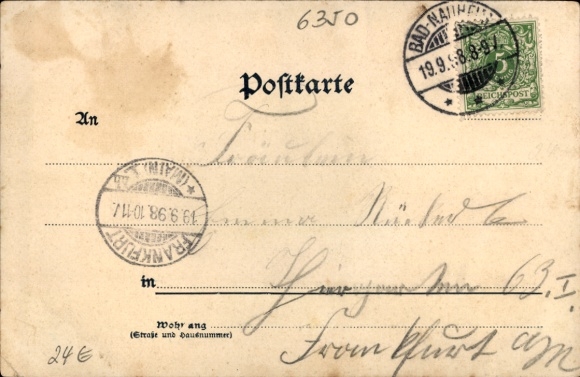 6350
BAD-NAUHEIM
19.9.98.8-9V.
5
REICHSPOST
Postkarte
An
Fräulein
Emma
(MAIN) 1.
19.9.98.10-11V.
FRANKFURT
in 63 I.
Wohnung
(Straße und Hausnummer)
Frankfurt a/M
24E